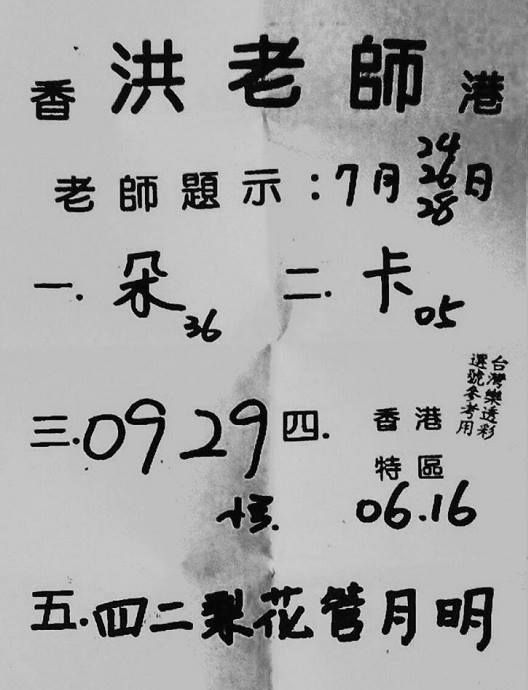 香港 洪老師
老師題示:7月24 26 28日
一.朵36 二.卡05
台灣樂透彩
選號參考用
三.09 29 四.香港
特區
06.16
五.四二梨花管月明